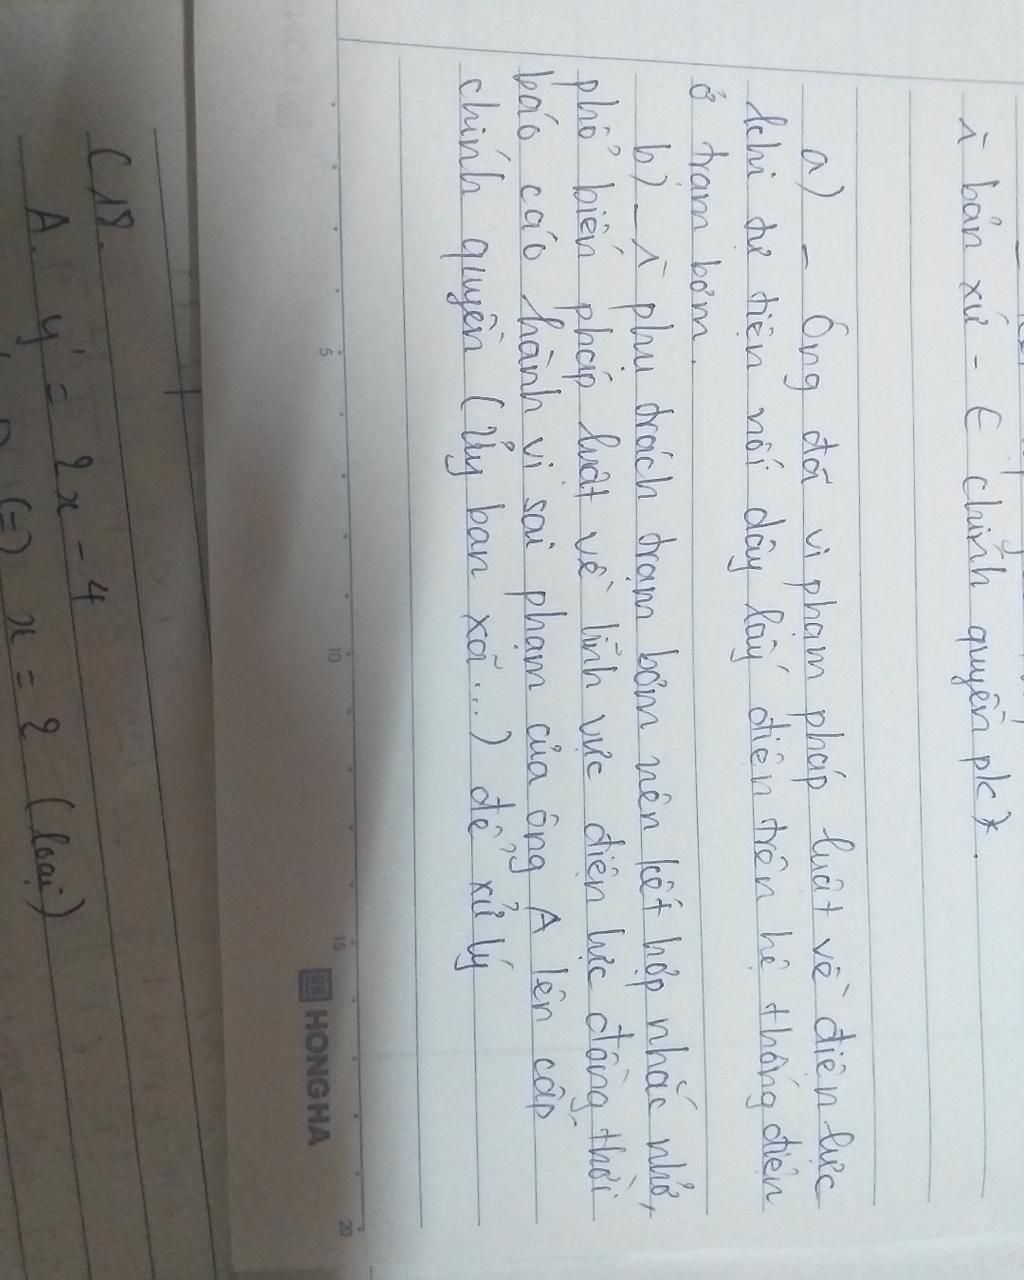 ì bản xứ - E chính quyền pk).
a) - Ông đã vi phạm pháp luật về điện lực
khi tự tiện nối dây lấy điện trên hệ thống điện
ở trạm bơm.
b) - ì phụ trách trạm bơm nên kết hợp nhắc nhở,
phổ biến pháp luật về lĩnh vực điện lực đồng thời
báo cáo hành vi sai phạm của ông A lên cấp
chính quyền (Ủy ban xã...) để xử lý
5
10
15
20
HONG HA
C18.
A. y' = 2x - 4
(=) x = 2 (loại)